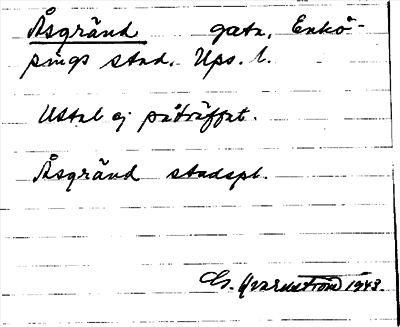 Åsgränd gata, Enkö-
pings stad. Ups. l.
Uttal ej påträffat.
Åsgränd stadspl.
Cs. Qvarnström 1943.